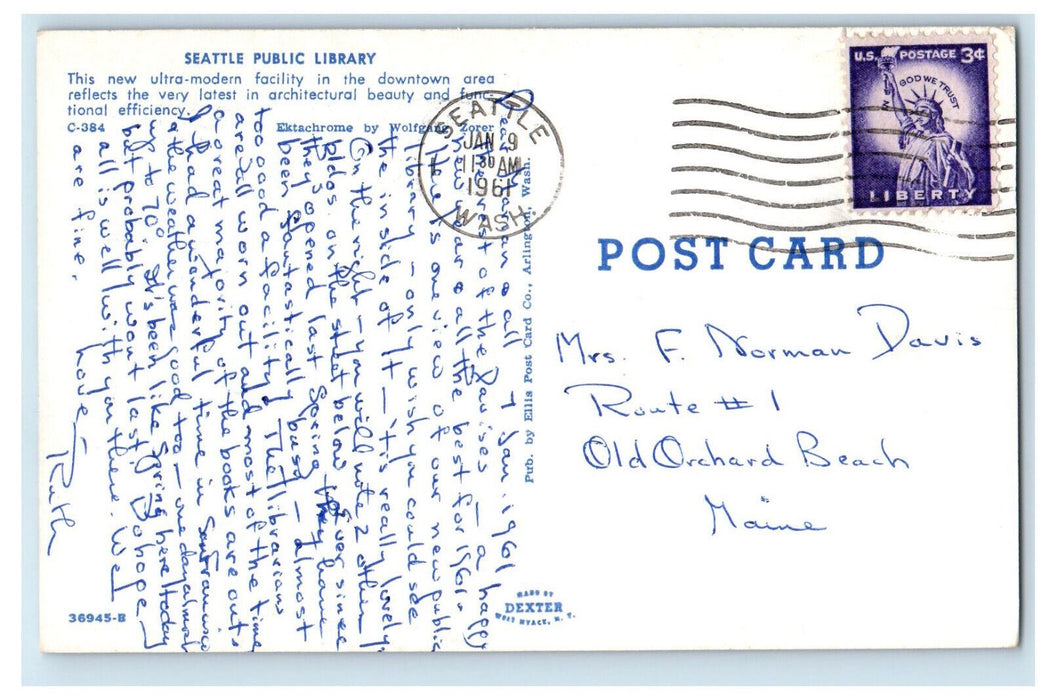 SEATTLE PUBLIC LIBRARY
This new ultra-modern facility in the downtown area
reflects the very latest in architectural beauty and func-
tional efficiency.
C-384
Ektachrome by Wolfgang Zorer
Pub. by Ellis Post Card Co., Arlington, Wash.
SEATTLE
JAN 9
11 30 AM
1961
WASH.
U.S. POSTAGE 3¢
IN GOD WE TRUST
LIBERTY
POST CARD
Mrs. F. Norman Davis
Route #1
Old Orchard Beach
Maine
& all 7 Jan. 1961
& the rest of the Davises — a happy
new year & all the best for 1961.
Here's one view of our new public
library — only wish you could see
the inside of it — 'tis really lovely.
On the right — you will note 2 other
bldgs. on the street below. Ever since
they opened last Spring they have
been fantastically busy — almost
too good a facility! The librarians
are all worn out and most of the time
a great majority of the books are out.
I had a wonderful time in San Francisco
& the weather was good too — one day almost
up to 70°. It's been like Spring here today
but probably won't last. Do hope
all is well with you there. We
all are fine.
Love —
Ruth
36945-B
MADE BY
DEXTER
WEST NYACK, N. Y.